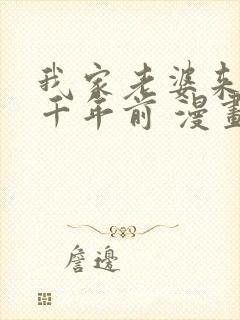 我家老婆来
千年前 漫畫
詹邊